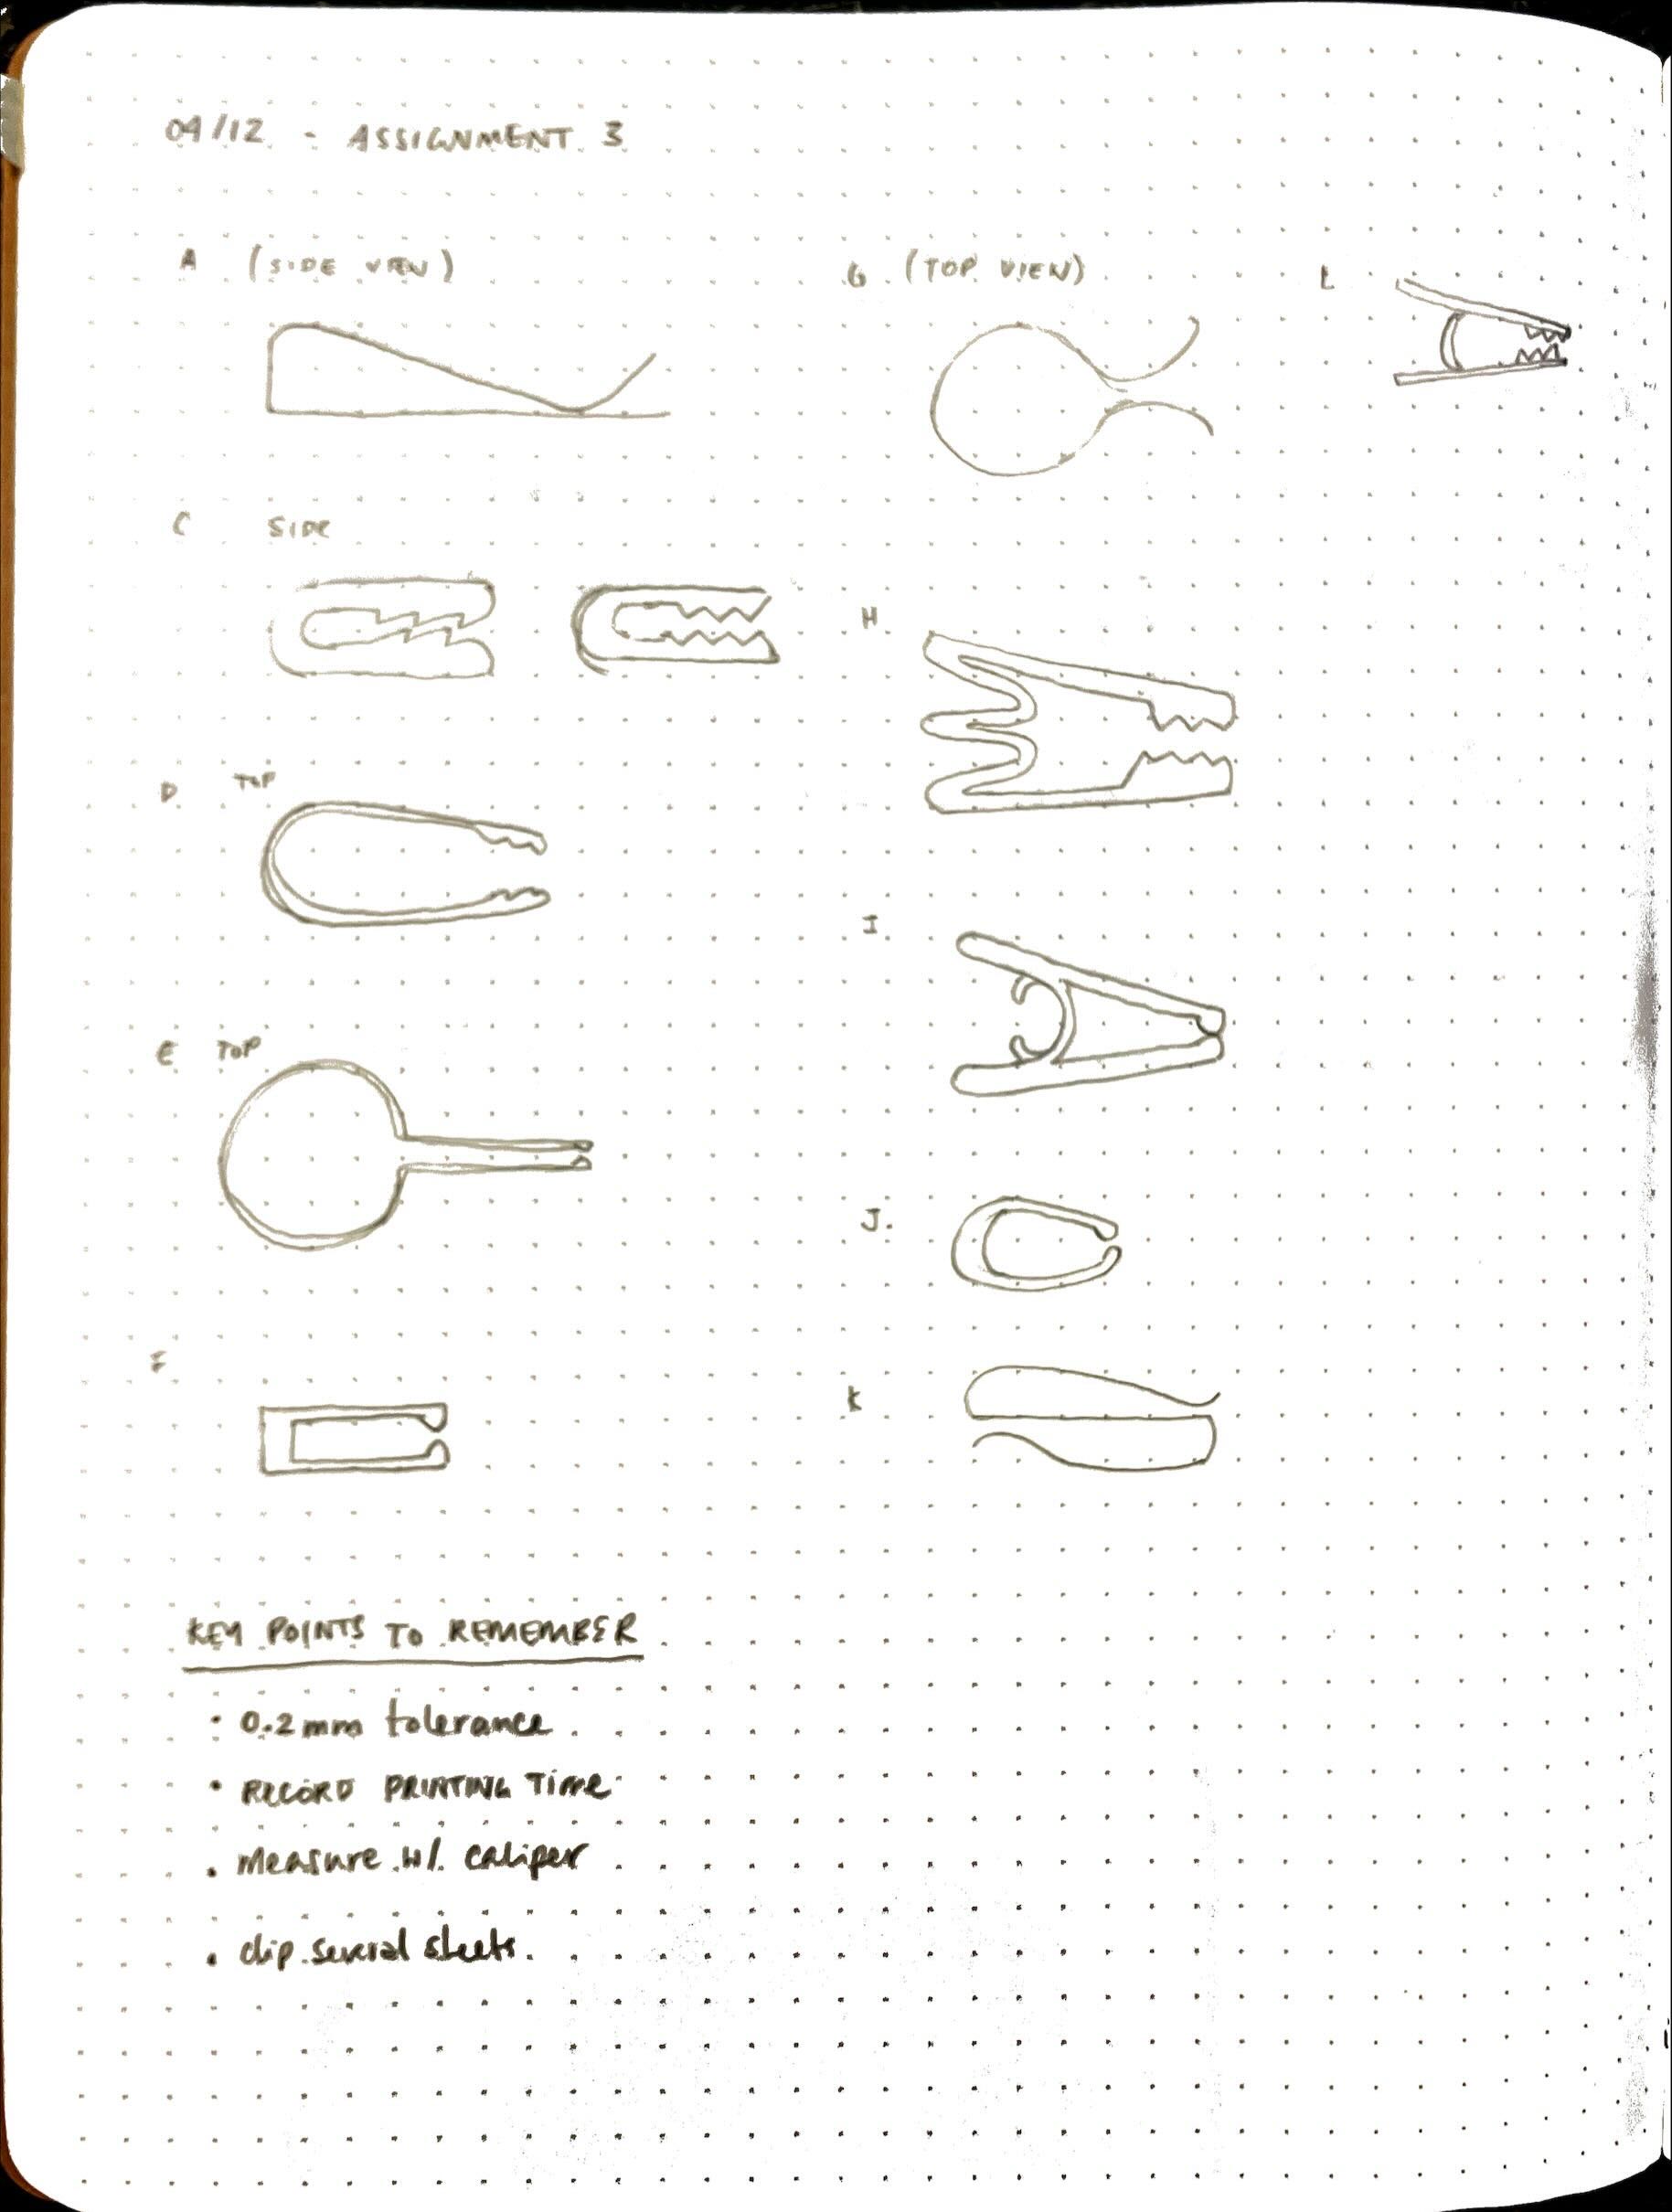 04/12 - ASSIGNMENT 3
A (SIDE VIEW)
G (TOP VIEW)
L
C SIDE
H
D TOP
I
E TOP
J.
F
K
KEY POINTS TO REMEMBER
• 0.2mm tolerance
• RECORD PRINTING TIME
• measure w/ caliper
• clip several sheets.